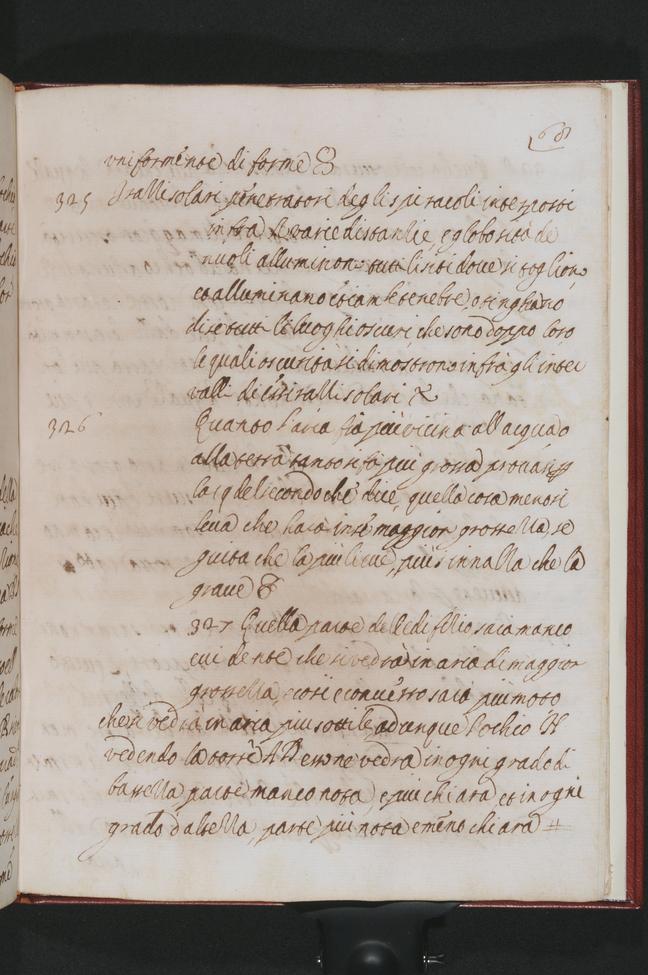 68
uniforme'nte di forme
325 I ralli solari penettratori degli spiracoli interposti
infra le varie distantie, e globosità de
nuvoli alluminon tutti li siti dove si taglion
et alluminano etiam le tenebre, e tinghano
di se tutti le luoghi oscuri che sono doppo loro
le quali oscurità si dimostrono infrà gli inter
valli di essi ralli solari
326 Quanto l'aria fia piu vicina all'acqua o
alla terra tanto si fà piu grossa provasi p
la 19 del secondo che dice, quella cosa meno si
leva che harà in se maggior grossezza, se
guita che la piu lieve, piu s'innalza che la
grave
327 Quella parte dell'edifitio sara manco
evidente che si vedrà in aria di maggior
grossezza, e cosi econverso sara piu noto
che si vedrà in aria piu sottile adunque l'ochio N
vedendo la torre A D esso ne vedra in ogni grado di
bassezza parte manco nota, e piu chiara, et in ogni
grado d'altezza, parte piu nota e meno chiara